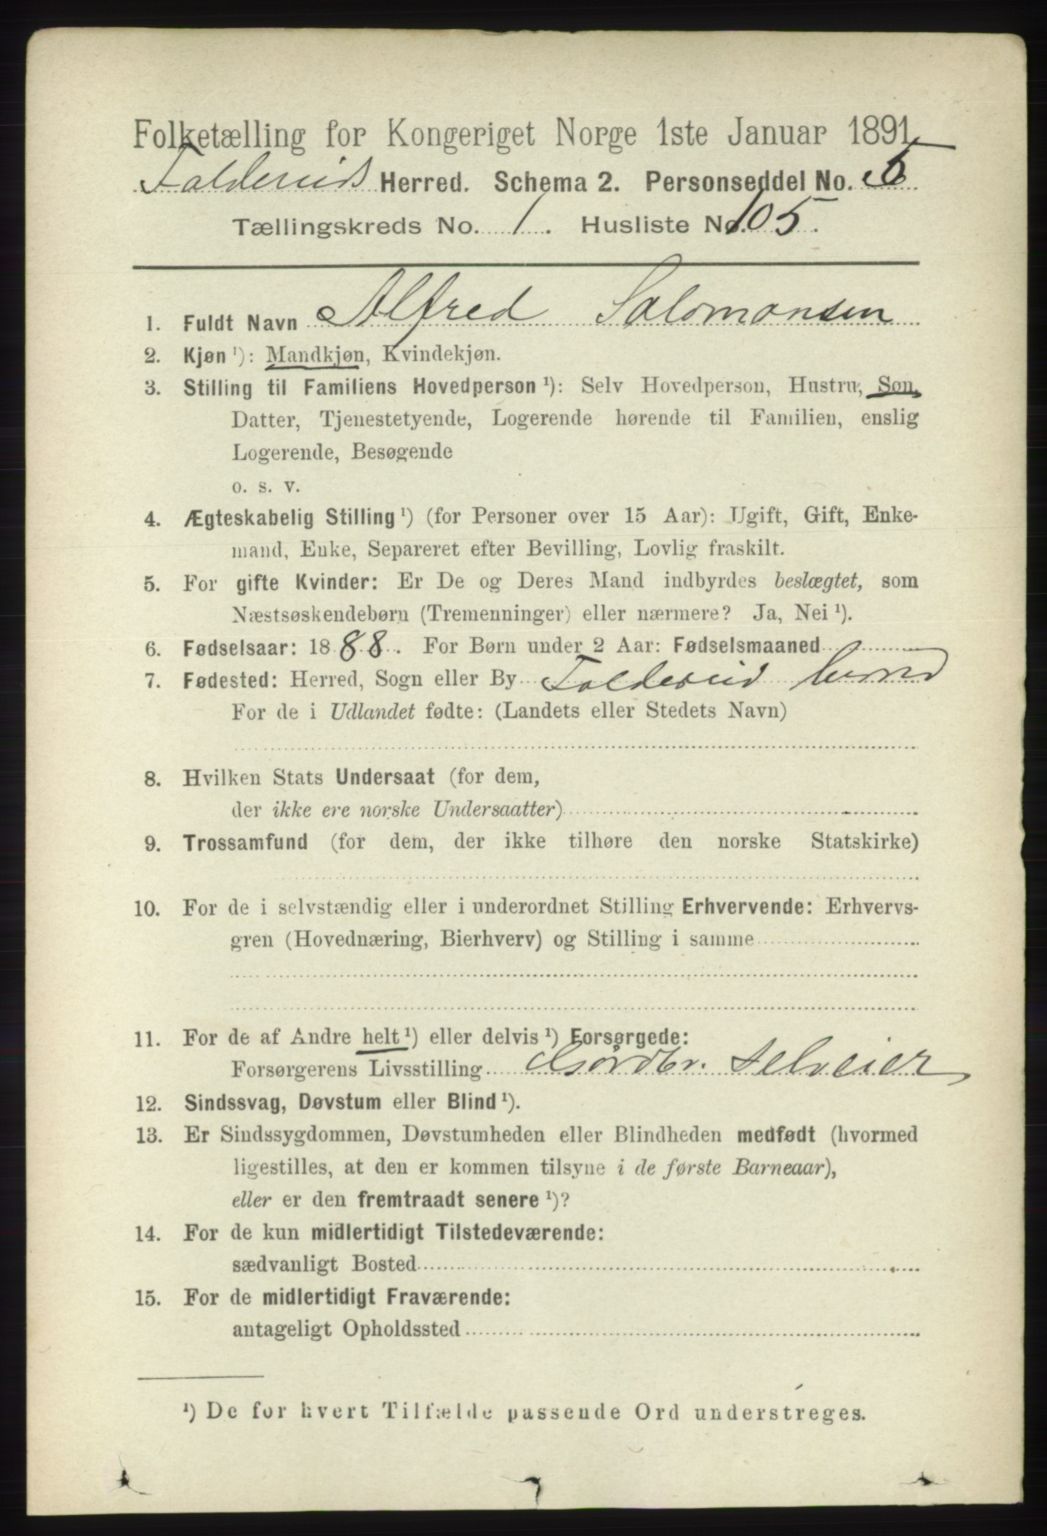 Folketælling for Kongeriget Norge 1ste Januar 1891.
Foldereids Herred. Schema 2. Personseddel No. 5
Tællingskreds No. 1. Husliste No. 105.
1. Fuldt Navn Alfred Salomonsen
2. Kjøn ¹): Mandkjøn, Kvindekjøn.
3. Stilling til Familiens Hovedperson ¹): Selv Hovedperson, Hustru, Søn,
Datter, Tjenestetyende, Logerende hørende til Familien, enslig
Logerende, Besøgende
o. s. v.
4. Ægteskabelig Stilling ¹) (for Personer over 15 Aar): Ugift, Gift, Enke-
mand, Enke, Separeret efter Bevilling, Lovlig fraskilt.
5. For gifte Kvinder: Er De og Deres Mand indbyrdes beslægtet, som
Næstsøskendebørn (Tremenninger) eller nærmere? Ja, Nei ¹).
6. Fødselsaar: 1888. For Børn under 2 Aar: Fødselsmaaned
7. Fødested: Herred, Sogn eller By Foldereid
For de i Udlandet fødte: (Landets eller Stedets Navn)
8. Hvilken Stats Undersaat (for dem,
der ikke ere norske Undersaatter)
9. Trossamfund (for dem, der ikke tilhøre den norske Statskirke)
10. For de i selvstændig eller i underordnet Stilling Erhvervende: Erhvervs-
gren (Hovednæring, Bierhverv) og Stilling i samme
11. For de af Andre helt ¹) eller delvis ¹) Forsørgede:
Forsørgerens Livsstilling Gårdbr. Selveier
12. Sindssvag, Døvstum eller Blind ¹).
13. Er Sindssygdommen, Døvstumheden eller Blindheden medfødt (hvormed
ligestilles, at den er kommen tilsyne i de første Barneaar),
eller er den fremtraadt senere ¹)?
14. For de kun midlertidigt Tilstedeværende:
sædvanligt Bosted
15. For de midlertidigt Fraværende:
antageligt Opholdssted
¹) De for hvert Tilfælde passende Ord understreges.